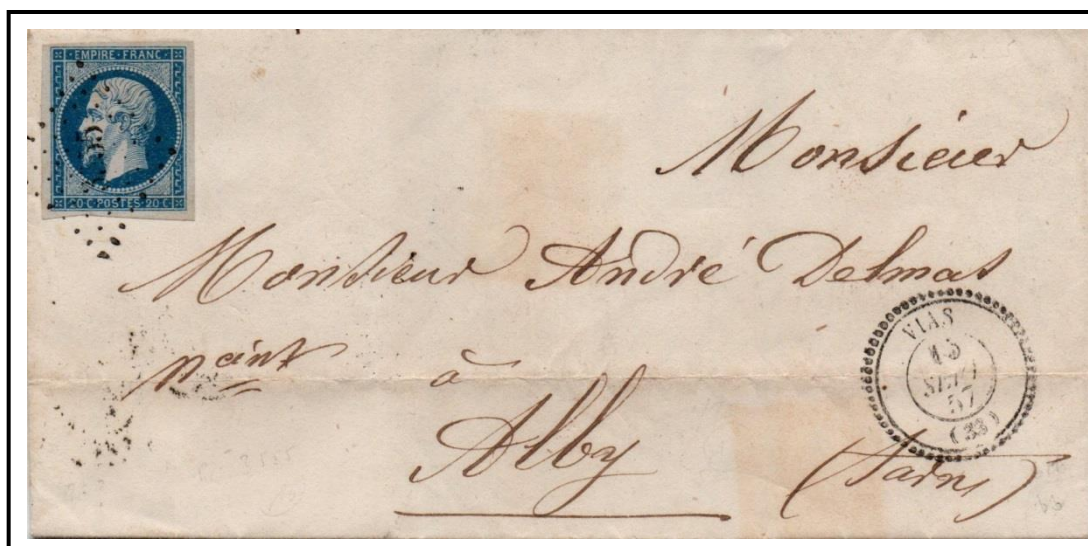 EMPIRE · FRANC ·
20 C · POSTES · 20 C
Monsieur
Monsieur André Delmas
nég^t à
Alby (Tarn)
VIAS
15
SEPT
57
(33)